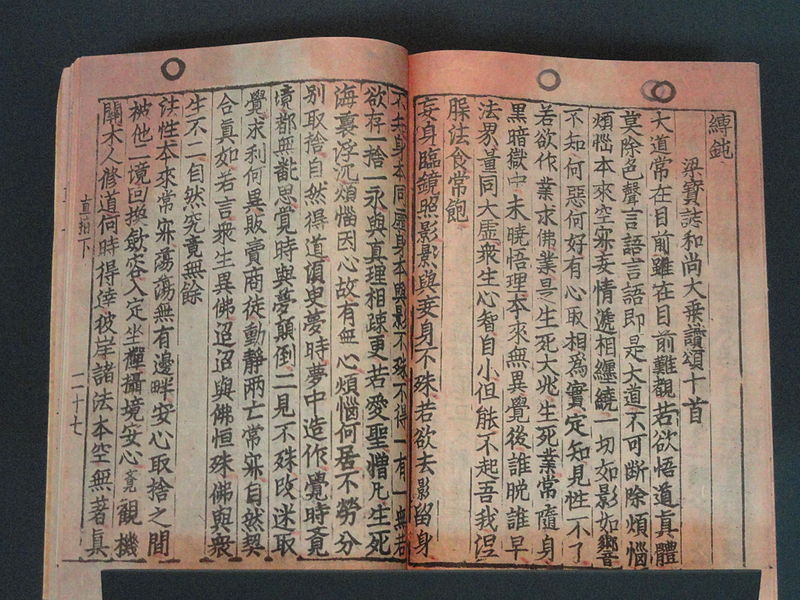 縛鈍
梁寶誌和尚大乗讚頌十首
大道常在目前雖在目前難覩若欲悟道真體
莫除色聲言語言語即是大道不可斷除煩惱
煩惱本來空寂妄情遞相纏繞一切如影如響
不知何惡何好有心取相為實定知見性不了
若欲作業求佛業是生死大兆生死業常隨身
黑暗獄中未曉悟理本來無異覺後誰晚誰早
法界量同大虛衆生心智自小但能不起吾我涅
槃法食常飽
妄身臨鏡照影影與妄身不殊若欲去影留身
不知身本同虛身本與影不殊不得一有一無若
欲存一捨一永與真理相踈更若愛聖憎凡生死
海裏浮沉煩惱因心故有無心煩惱何居不勞分
別取捨自然得道湏臾夢時夢中造作覺時覺
境都無飜思覺時與夢顛倒二見不殊改迷取
覺求利何異販賣商徒動靜兩亡常寂自然契
合真如若言衆生異佛迢迢與佛恒殊佛與衆
生不二自然究竟無餘
法性本來常寂蕩蕩無有邊畔安心取捨之間
被他二境回換斂容入定坐禪攝境安心覺觀機
關木人修道何時得達彼岸諸法本空無著真
直指下
二十七